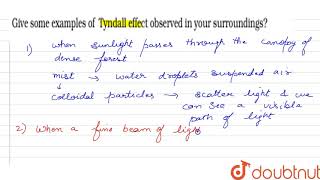 Give some examples of Tyndall effect observed in your surroundings?
1) when sunlight passes through the canopy of
dense forest
mist → water droplets suspended air
↓
colloidal particles → scatter light & we
can see a visible
path of light
2) When a fine beam of light
doubtnut